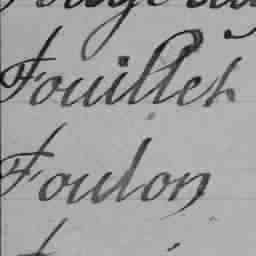 Fouillet
Foulon